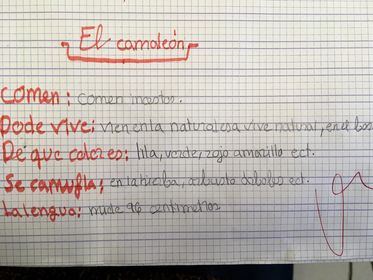 El camaleón
Comen: comen insectos.
Dode vive: vien en la naturalesa vive natural, en el bos
De que coloreo: lila, verde, rojo amarillo ect.
Se camufla: en la hierba, arbusto ect.
La lengua: mide 96 centimetros